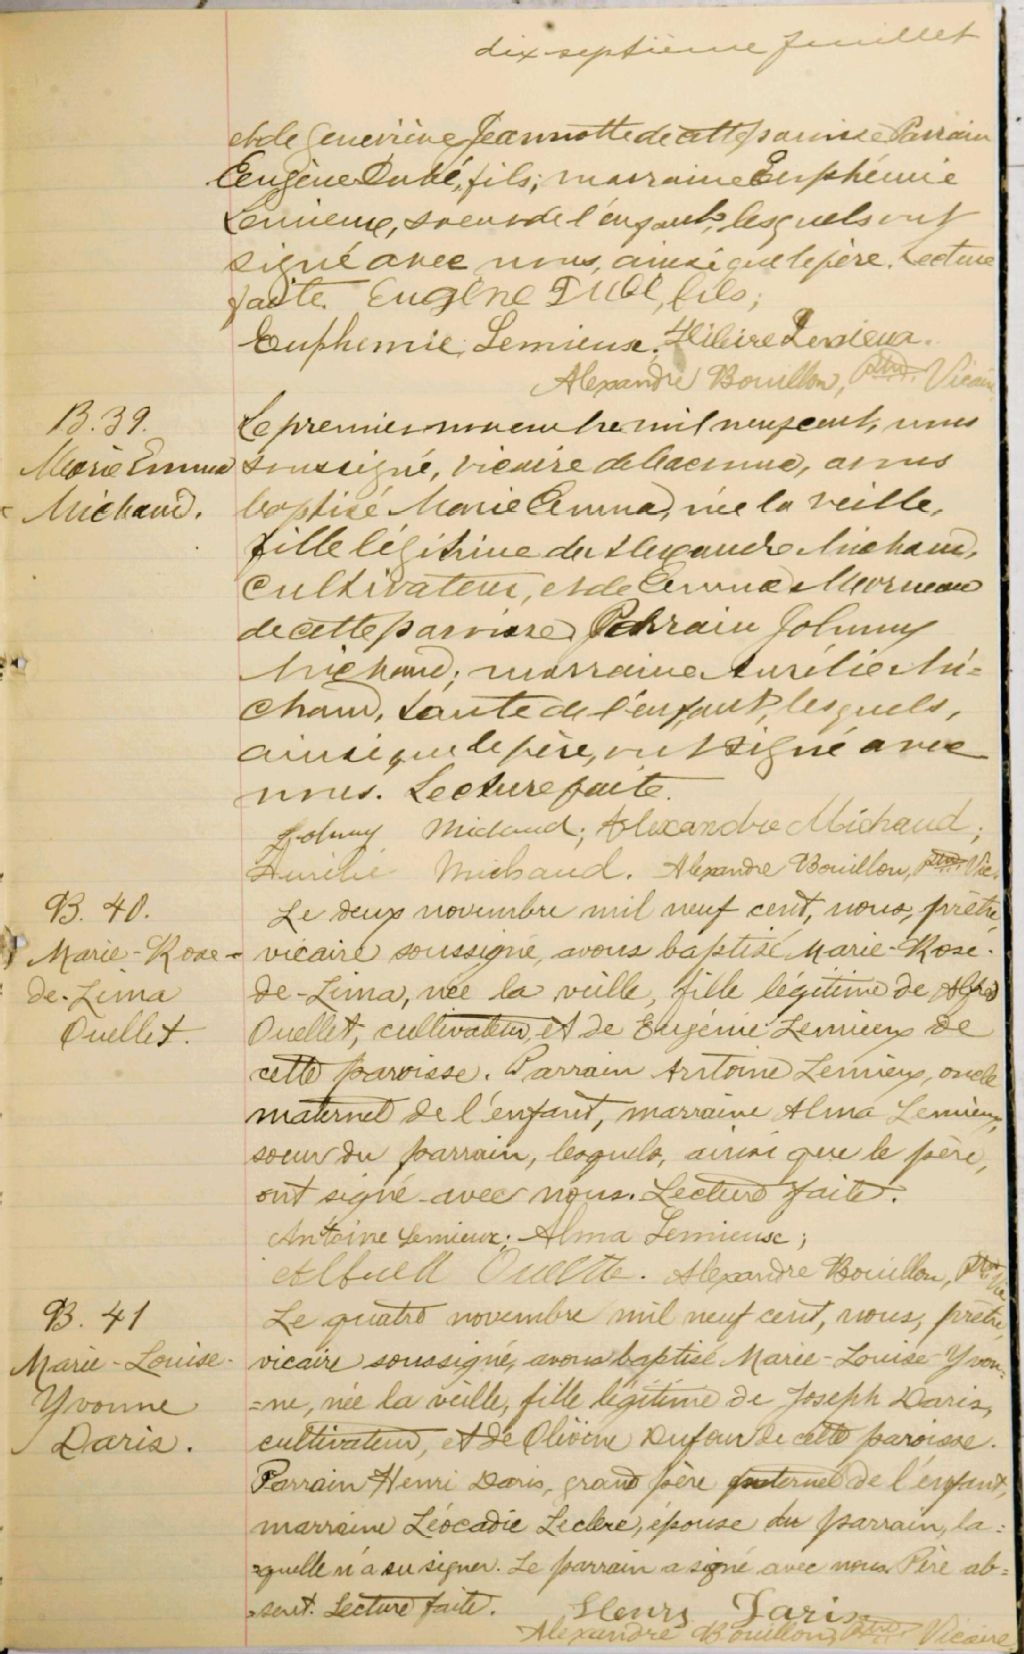 dix-septième feuillet
et de Geneviève Jeannotte de cette paroisse Parrain
Eugène Dubé, fils; marraine Euphémie
Lemieux, soeur de l'enfant, lesquels ont
signé avec nous, ainsi que le père. Lecture
faite. Eugène Dubé, fils;
Euphemie Lemieux.
Alexandre Bouillon, ptre. Vicaire
B. 39.
Marie Emma
Michaud.
Le premier novembre mil neuf cent, nous
soussigné, vicaire de avons
baptisé Marie Emma, née la veille,
fille légitime de Alexandre Michaud,
cultivateur, et de Emma Morneau
de cette paroisse. Parrain Johnny
Michaud; marraine Aurélie Mi=
chaud, tante de l'enfant, lesquels,
ainsi que le père, ont signé avec
nous. Lecture faite.
Johnny Michaud; Alexandre Michaud;
Aurélie Michaud. Alexandre Bouillon, ptre Vic.
B. 40.
Marie-Rose-
de-Lima
Ouellet.
Le deux novembre mil neuf cent, nous, prêtre
vicaire soussigné, avons baptisé Marie-Rose-
de-Lima, née la veille, fille légitime de Alfred
Ouellet, cultivateur, et de Eugénie Lemieux de
cette paroisse. Parrain Antoine Lemieux, oncle
maternel de l'enfant, marraine Alma Lemieux,
soeur du parrain, lesquels, ainsi que le père,
ont signé avec nous. Lecture faite.
Antoine Lemieux; Alma Lemieux;
Ouellette. Alexandre Bouillon, ptre Vic
B. 41
Marie-Louise-
Yvonne
Daris.
Le quatre novembre mil neuf cent, nous, prêtre,
vicaire soussigné, avons baptisé Marie-Louise-Yvon=
=ne, née la veille, fille légitime de Joseph Daris,
cultivateur, et de Olivine Dufour de cette paroisse.
Parrain Henri Daris, grand père paternel de l'enfant,
marraine Léocadie Leclerc, épouse du parrain, la=
=quelle n'a su signer. Le parrain a signé avec nous. Père ab=
=sent. Lecture faite. Henry Daris
Alexandre Bouillon, ptre. Vicaire